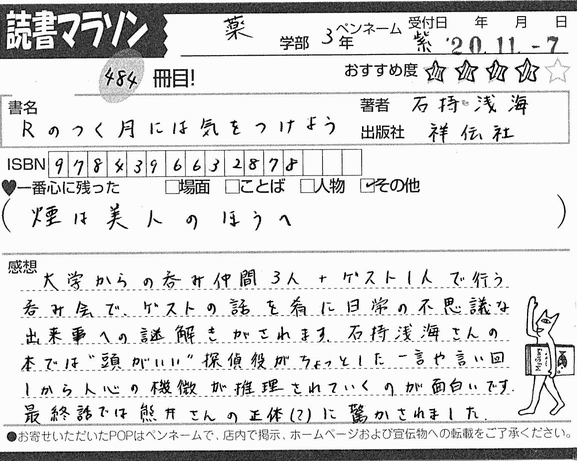 読書マラソン
薬 学部 3年 ペンネーム 紫 受付日 年 月 日
'20.11.-7
484 冊目!
おすすめ度 ★★★★☆
書名 Rのつく月には気をつけよう
著者 石持 浅海
出版社 祥伝社
ISBN 9784396632878
♥一番心に残った □場面 □ことば □人物 ☑その他
(煙は美人のほうへ)
感想
大学からの呑み仲間3人+ゲスト1人で行う
呑み会で、ゲストの話を肴に日常の不思議な
出来事への謎解きがされます。石持浅海さんの
本では"頭がいい"探偵役がちょっとした一言や言い回
しから人心の機微が推理されていくのが面白いです。
最終話では熊井さんの正体(?)に驚かされました。
●お寄せいただいたPOPはペンネームで、店内で掲示、ホームページおよび宣伝物への転載をご了承ください。